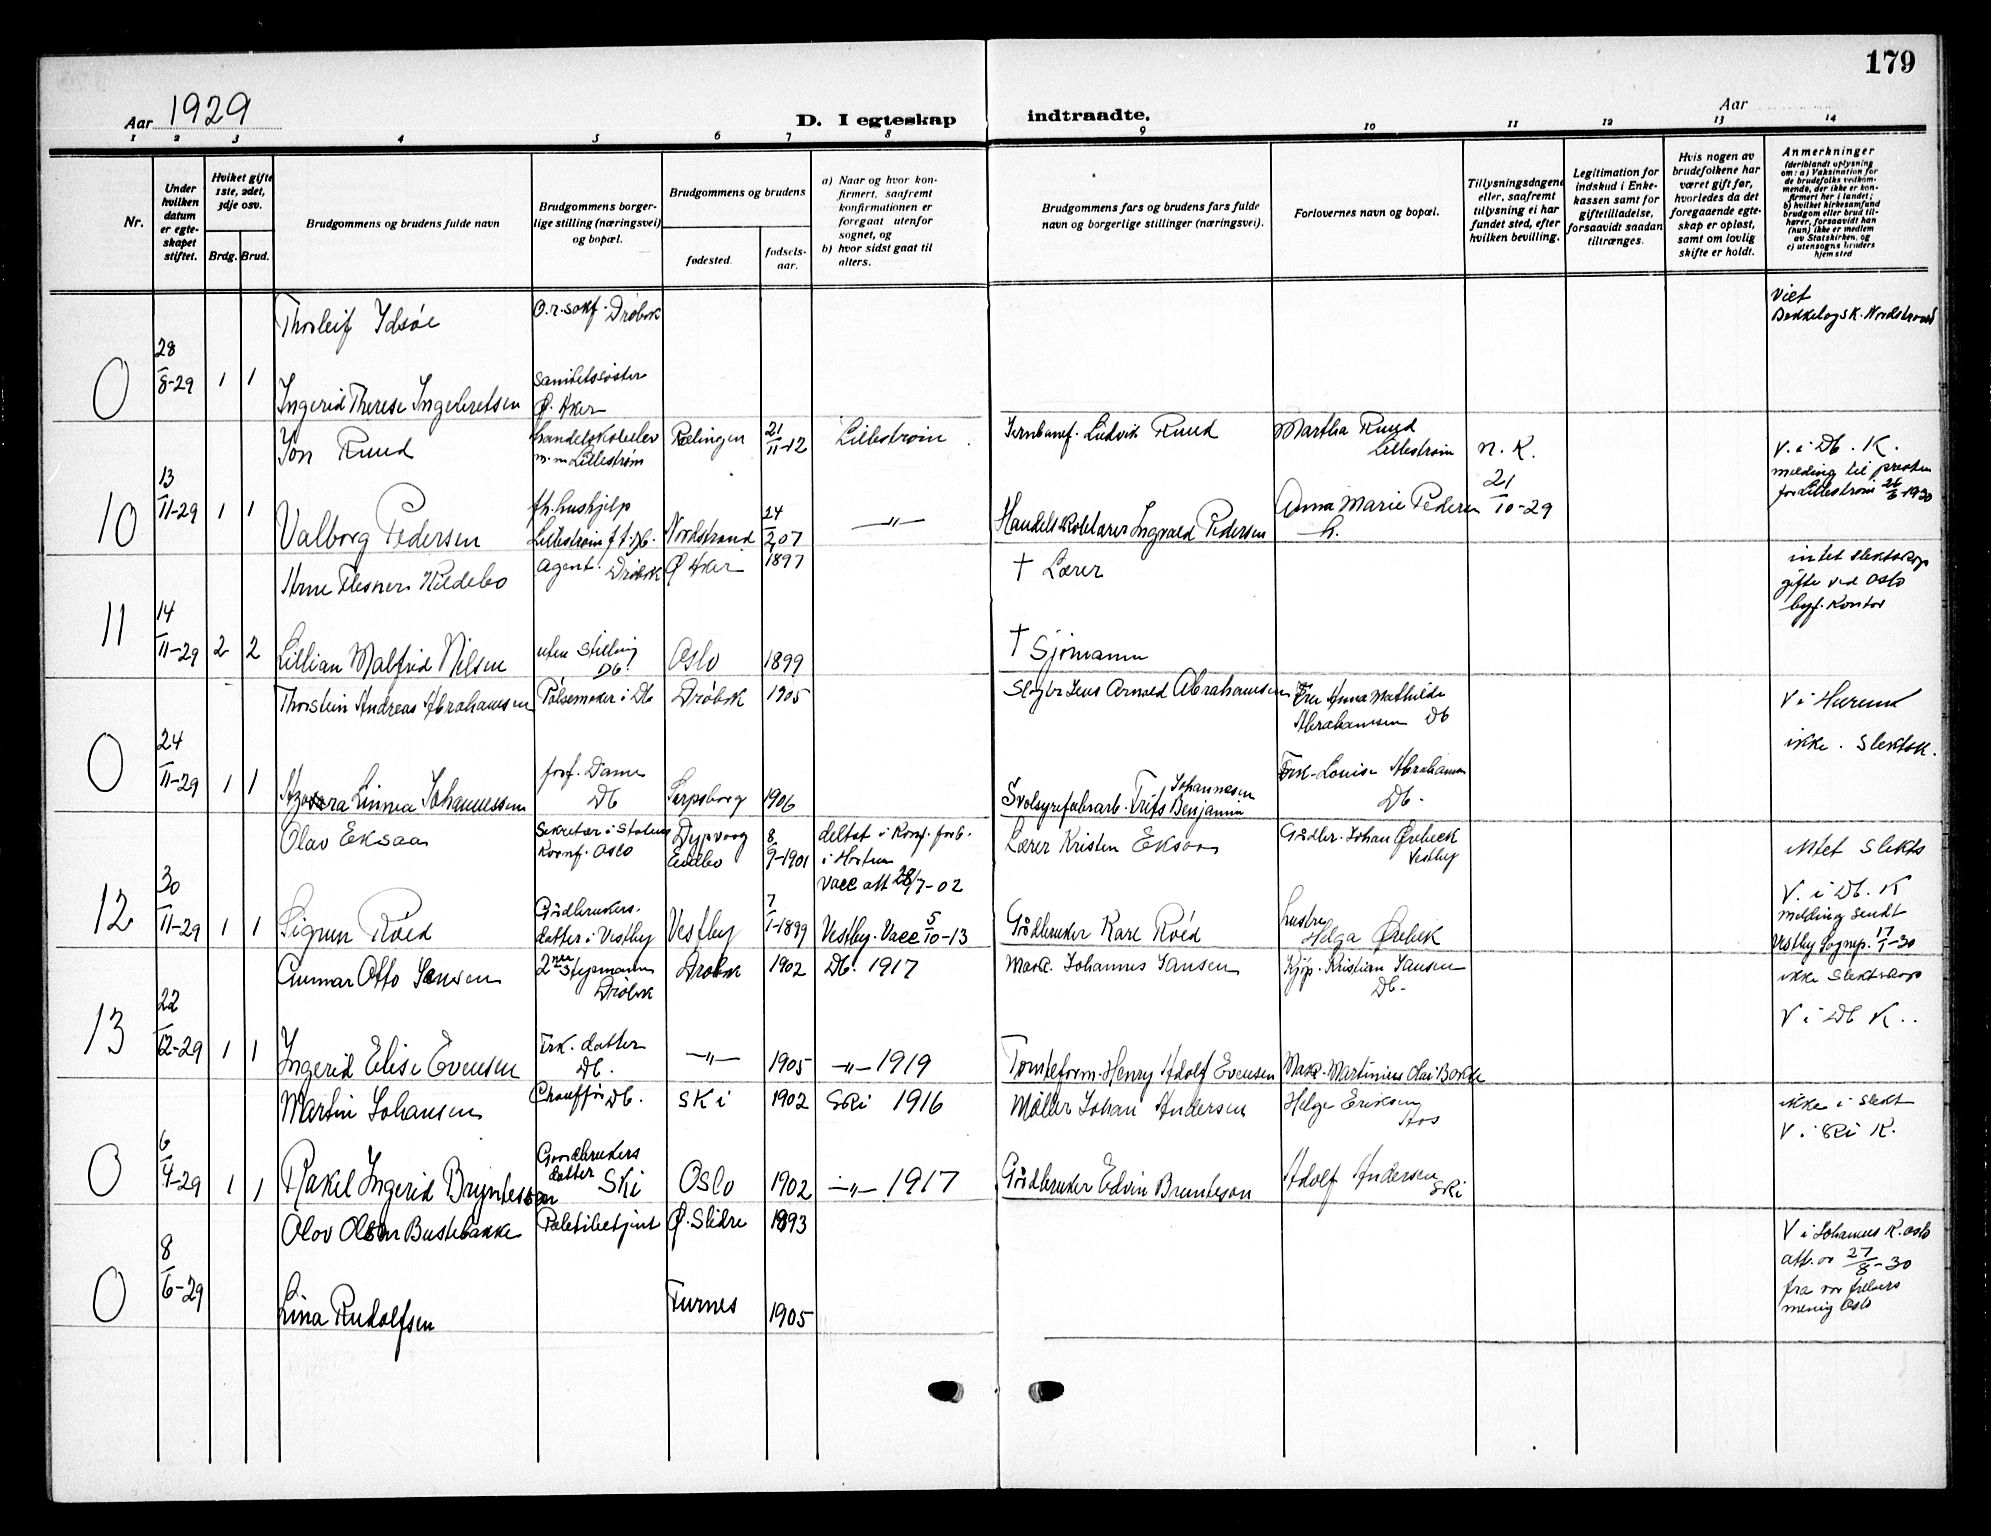 179
Aar 1929
D. I egteskap indtraadte.
Aar
1 2 3 4 5 6 7 8 9 10 11 12 13 14
Nr.
Under hvilken datum er egteskapet stiftet.
Hviket gifte 1ste, 2det, 3dje osv.
Brdg. Brud.
Brudgommens og brudens fulde navn
Brudgommens borgerlige stilling (næringsvei) og bopæl.
Brudgommens og brudens
fødested.
fødselsaar.
a) Naar og hvor konfirmert, saafremt konfirmationen er foregaat utenfor sognet, og
b) hvor sidst gaat til alters.
Brudgommens fars og brudens fars fulde navn og borgerlige stillinger (næringsvei).
Forlovernes navn og bopæl.
Tillysningsdagene eller, saafremt tillysning ei har fundet sted, efter hvilken bevilling.
Legitimation for indskud i Enkekassen samt for giftetilladelse, forsaavidt saadan tiltrænges.
Hvis nogen av brudefolkene har været gift før, hvorledes da det foregaaende egteskap er opløst, samt om lovlig skifte er holdt.
Anmerkninger
(deriblandt oplysning om: a) Vaksination for de brudefolks vedkommende, der ikke er konfirmert her i landet; b) hvilket kirkesamfund brudgom eller brud tilhører, forsaavidt han (hun) ikke er medlem av Statskirken, og c) utensogns bruders hjemsted
Thorleif Idsøe O.r.sakf. Drøbak
Viet
Bekkelags K. Nordstrand
0 28/8-29 1 1
Ingerid Therese Ingebretsen
sanitetssøster
Ø. Aker
Jon Ruud
handelskoleelev
Lillestrøm
Rælingen 21/11-12 Lillestrøm
Ludvik Ruud
Martha Ruud
Lillestrøm
n. K.
V. i Db. K.
melding til presten
for Lillestrøm 26/6-1930
10 13/11-29 1 1
Valborg Pedersen
fh. hushjelp
Lillestrøm f.t. Db. Nordstrand 24/2 07 —"—
Handelskolelærer Ingvald Pedersen
Anna Marie Pedersen
h.
21/10-29
Arne Flesner Hildebo
agent. Drøbak Ø Aker 1897
† Lærer
intet slektskap
gifte ved Oslo
byf. Kontor
11 14/11-29 2 2
Lillian Malfrid Nilsen
uten Stilling
Db.
Oslo 1899
† Sjømann
Thorstein Andreas Abrahamsen Pølsemaker i Db Drøbak 1905
Jens Arnold Abrahamsen
Fru Anna Mathilde
Abrahamsen Db
V i Hurum
ikke. Slektsk.
0 24/11-29 1 1
Linnea Johannessen
Db
Sarpsborg 1906
Svolsyrefabrarb. Frits Benjamin
Johannesen
Frk. Louise Abrahamsen
Db.
Olav Eksaa
Sekretær i Statens
Kornf. Oslo
Dypvaag
8/9-1901
deltat i Konf. forb.
i Horten
Vacc att 28/7-02
Lærer Kristen Eksaa
Gårdbr. Johan Ørebeck
Vestby
intet Slekts
V. i Db. K
melding sendt
Vestby Sognep. 17/1-30
12 30/11-29 1 1
Sigrun Røed
Gårdbrukers.
datter i Vestby
Vestby 7/1-1899 Vestby. Vacc 5/10-13
Gårdbruker Karl Røed
hustru
Helga Ørebek
Gunnar Otto Jansen
2nen Styrmann
Drøbak
Drøbak 1902 Db. 1917
Mask. Johannes Jansen
Kjøp. Kristian Jansen
Db.
ikke Slektskap
V i Db K..
13 22/12-29 1 1
Ingerid Elise Evensen
Frk. datter
Db.
—"— 1905 —"— 1919
Tomteform. Henry Adolf Evensen
Mask. Martinius Olai Bakke
Martin Johansen
Chauffør Db. Ski 1902 Ski 1916
Møller Johan Andersen
Helge Eriksen
Aas
ikke i slekt
V. i Ski K.
0 6/4-29 1 1
Rakel Ingerid Bryntesson
Gaardbrukers
datter Ski
Oslo 1902 —"— 1917
Gårdbruker Edvin Bruntesson
Adolf Andersen
Ski
Olav Olsen Bustebakke
Politibetjent Ø. Slidre 1893
V i Johannes K. Oslo
att. av 27/8-30
fra vor frelsers
menig Oslo
0 8/6-29
Lina Rudolfsen
Furnes 1905